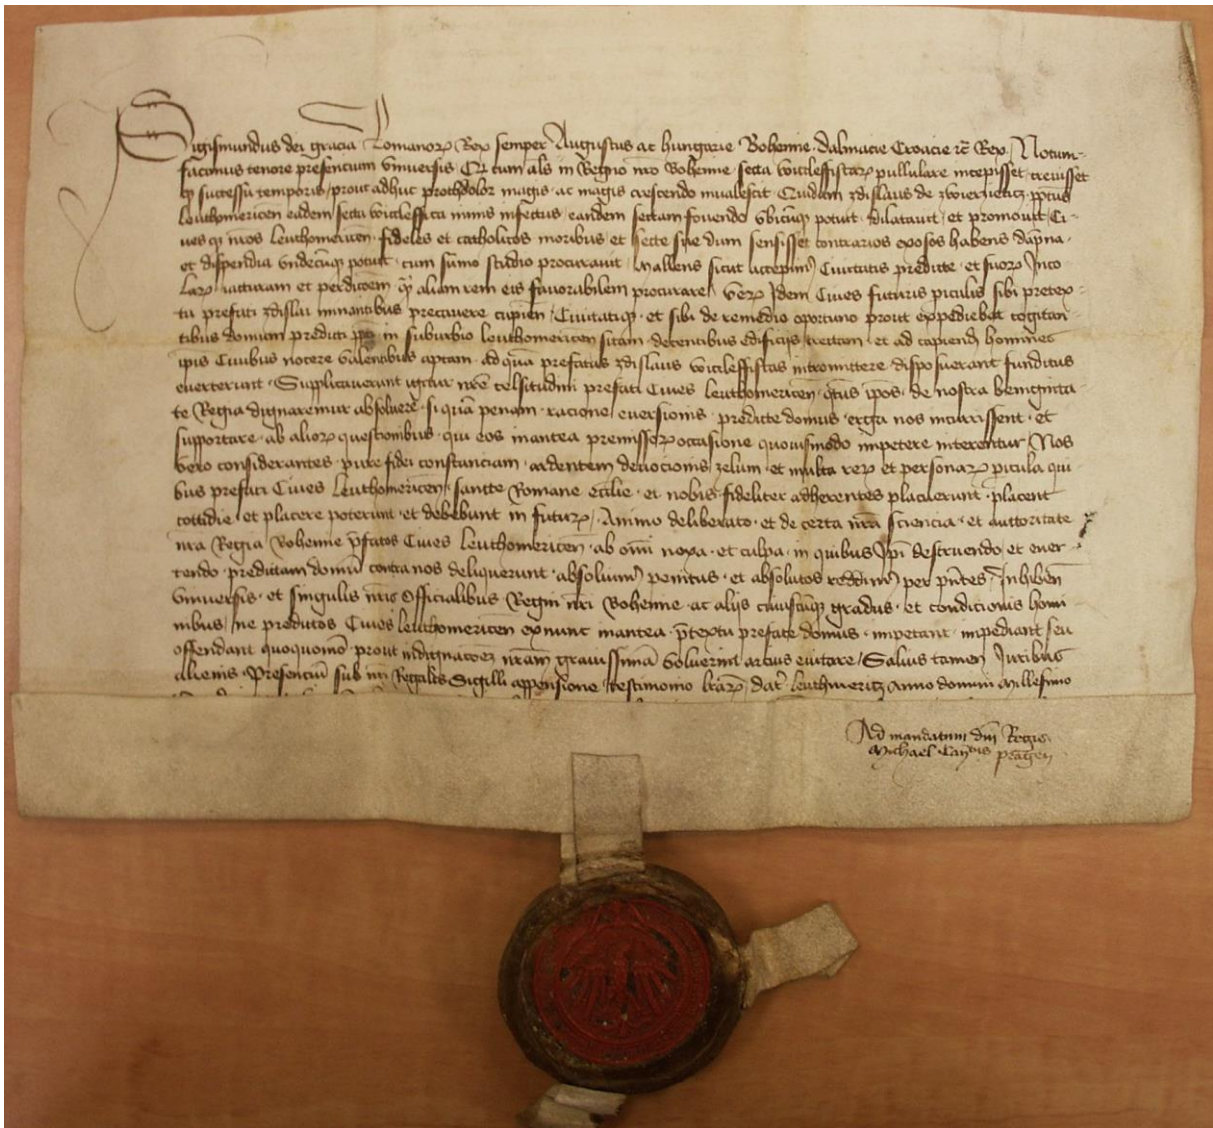 Sigismundus dei gracia Romanorum Rex semper Augustus ac hungarie Bohemie dalmacie Croacie etc Rex Notum
facimus tenore presencium vniuersis Cum als in Regno nro Bohemie secta wicleffistarum pullulare incepisset creuisset
successu temporis prout adhuc prothdolor magis ac magis crescendo inualescit Quidam zdislaus de
leuthomericen eadem secta wicleffica nimis infectus eandem sectam fouendo vbicumque potuit dilatauit et promouit Ci
ues nros leuthomericen fideles et catholicos moribus et secte sue dum sensisset contrarios exosos habens dapna
et dispendia vndecumque potuit cum summo studio procurauit Mallens sicut accepimus Ciuitatis predicte et suorum Inco
larum iacturam et perdicoem quam aliam rem eis fauorabilem procurare verum Idem Ciues futuris piculis sibi pretex
tu prefati zdislai minantibus precauere cupien Ciuitatique et sibi de remedio oportuno prout expediebat cogitan
tibus domum predicti in suburbio leuthomericen sitam decentibus edificijs erectam et ad capiend homines
ipis Ciuibus nocere valentibus aptam ad quam prefatus zdislaus wicleffistas intromittere disposuerant funditus
euerterunt Supplicauerunt igitur nre celsitudini prefati Ciues leuthomericen qtus ipos de nostra benignita
te Regia dignaremur absoluere si quam penam racione euersionis predicte domus erga nos incurrissent et
supportare ab aliorum questionibus qui eos inantea premissorum occasione quouismodo impetere niterentur Nos
vero considerantes pure fidei constanciam ardentem deuocionis zelum et multa rerum et personarum picula qui
bus prefati Ciues leuthomericen sancte Romane ecclie et nobis fideliter adherentes placuerunt placent
cottidie et placere poterunt et debebunt in futurum Animo deliberato et de certa nra sciencia et auctoritate
nra Regia Bohemie pfatos Ciues leuthomericen ab omi noxa et culpa in quibus Ipi destruendo et euer
tendo predictam domum contra nos deliquerunt absoluimus penitus et absolutos reddimus per pntes Inhiben
vniuersis et singulis nris Officialibus Regni nri Bohemie ac alijs cuiuscumque gradus et condicionis homi
nibus ne predictos Ciues leuthomericen exnunc inantea ptextu prefate domus impetant impediant seu
offendant quoquomo prout indignacoem nram grauissimam voluerint arcius euitare Saluis tamen Juribus
alienis Presencium sub nri Regalis Sigilli appensione testimonio lrarum dat leuthmeritz Anno domini Millesimo
Ad mandatum dni Regis
Michael Can pragen